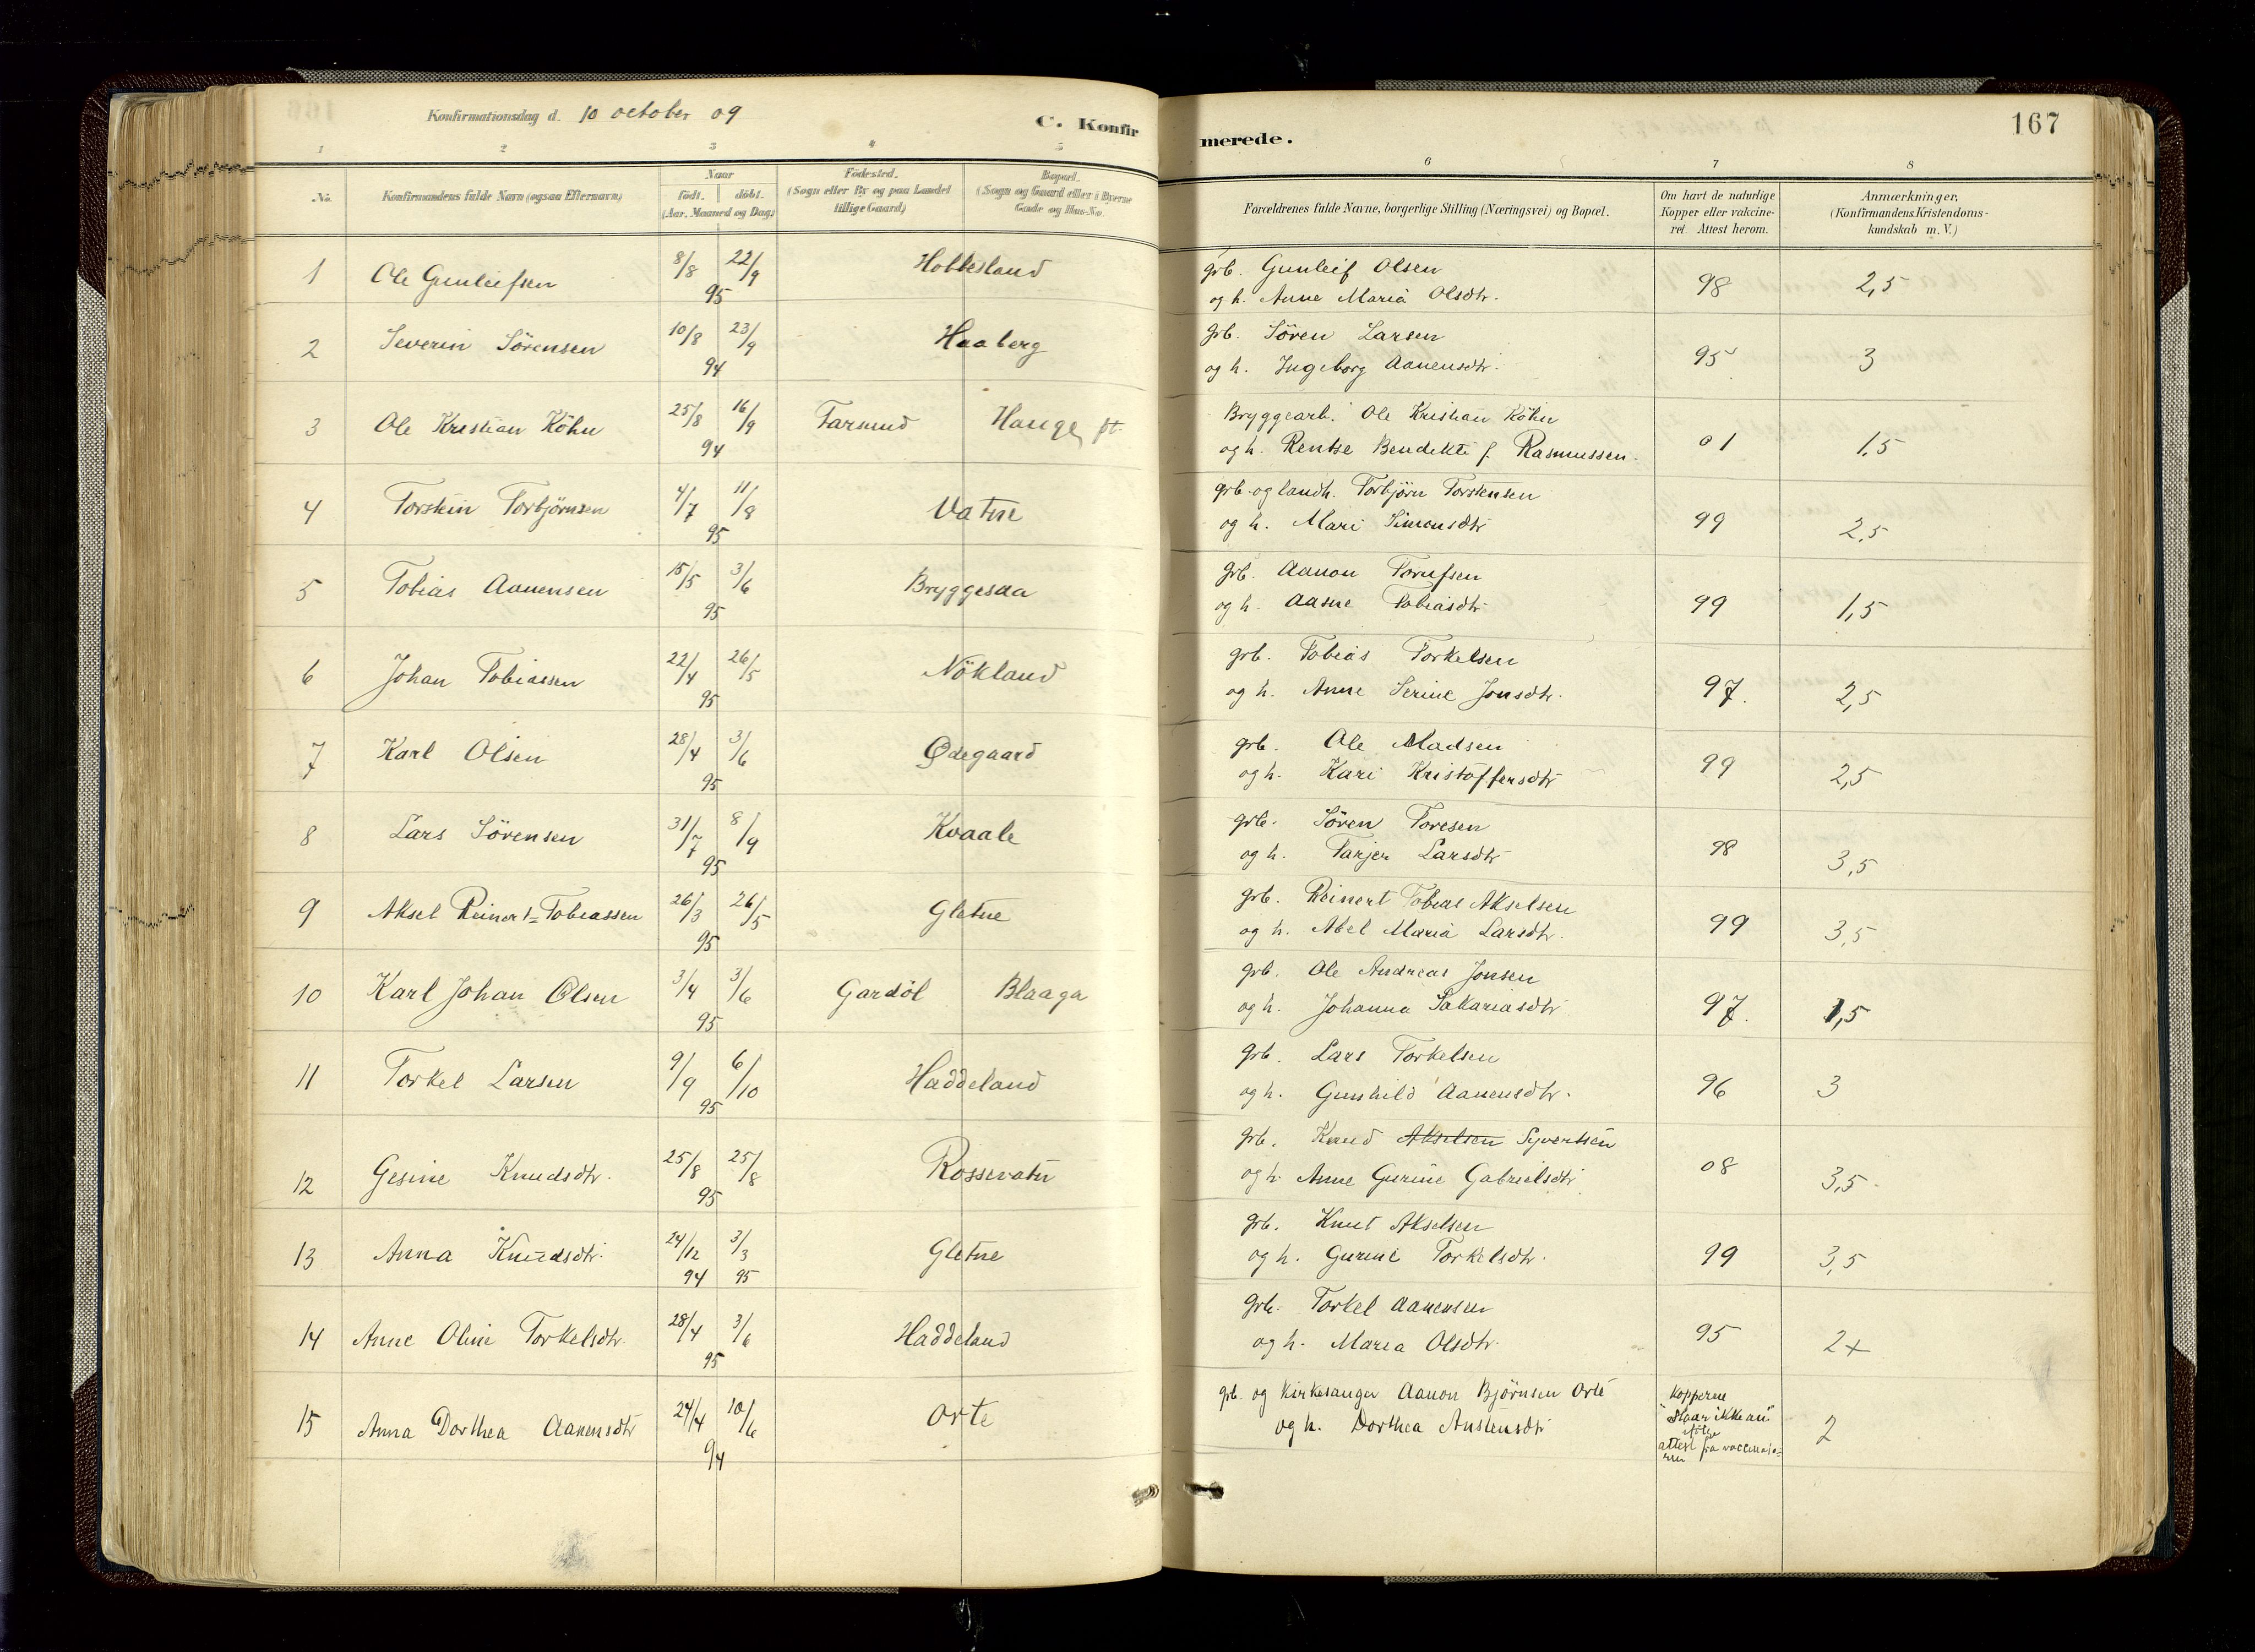 Konfirmationsdag d. 10 october 09
C. Konfirmerede.
167
1 2 3 4 5 6 7 8
No.
Konfirmandens fulde Navn (ogsaa Efternavn)
Naar
födt. döbt.
(Aar, Maaned og Dag)
Födested.
(Sogn eller By og paa Landet
tillige Gaard)
Bopæl.
(Sogn og Gaard eller i Byerne
Gade og Hus-No.
Forældrenes fulde Navne, borgerlige Stilling (Næringsvei) og Bopæl.
Om havt de naturlige
Kopper eller vakcine-
ret. Attest herom.
Anmærkninger,
(Konfirmandens Kristendoms-
kundskab m. V.)
1 Ole Gunleifsen 8/8 22/9 95 Hobbesland
grb. Gunleif Olsen
og h. Anne Maria Olsdtr. 98 2,5
2 Severin Sörensen 10/8 23/9 94 Haaberg
grb. Sören Larsen
og h. Ingeborg Aanensdtr. 95 3
3 Ole Kristian Köhn 25/8 16/9 94 Farsund Hauge pt.
Bryggearb. Ole Kristian Köhn
og h. Rentse Bendikte f. Rasmussen. 01 1,5
4 Torstein Torbjörnsen 4/7 11/8 95 Vatne
grb. og landh. Torbjörn Torstensen
og h. Mari Simonsdtr 99 2,5
5 Tobias Aanensen 15/5 3/6 95 Bryggesaa
grb. Aanon Torufsen
og h. Aasne Tobiasdtr 99 1,5
6 Johan Tobiassen 22/4 26/5 95 Nökland
grb. Tobias Torkelsen
og h. Anne Serine Jonsdtr. 97. 2,5
7 Karl Olsen 28/4 3/6 95 Ødegaard
grb. Ole Madsen
og h. Kari Kristoffersdtr 99 2,5
8 Lars Sörensen 31/7 8/9 95 Kvaale
grb. Sören Toresen
og h. Tarjer Larsdtr 98 3,5
9 Aksel Reinert Tobiassen 26/3 26/5 95 Gletne
grb. Reinert Tobias Akselsen
og h. Abel Maria Larsdtr. 99 3,5
10 Karl Johan Olsen 3/4 3/6 95 Gardöl Blaaga
grb. Ole Andreas Jonsen
og h. Johanna Sakariasdtr 97. 1,5
11 Torkel Larsen 9/9 6/10 95 Haddeland
grb. Lars Torkelsen
og h. Gunhild Aanensdtr. 96 3
12 Gesine Knudsdtr. 25/8 25/8 95 Rossevatn
grb. Knud Akselsen Syvertsen
og h. Anne Gurine Gabrielsdtr 08 3,5
13 Anna Knudsdtr. 24/12 94 3/3 95 Gletne
grb. Knut Akselsen
og h. Gurine Torkelsdtr. 99 3,5
14 Anne Oline Torkelsdtr. 28/4 3/6 95 Haddeland
grb. Torkel Aanensen
og h. Maria Olsdtr. 95 2+
15 Anna Dorthea Aanensdtr 24/4 10/6 94 Orte
grb. og Kirkesanger Aanon Björnsen Orte
og h. Dorthea Austensdtr
Kopperne
"slaar ikke an"
ifölge
attest fra vaccinatö-
ren
2